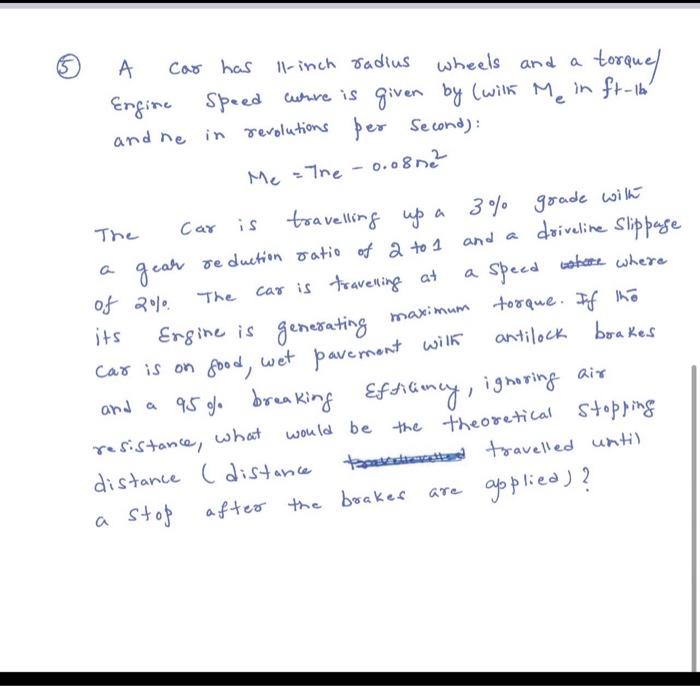 5 A car has 11-inch radius wheels and a torque/
Engine Speed curve is given by (with Me in ft-lb
and ne in revolutions per Second):
Me = 7ne - 0.08ne²
The Car is travelling up a 3% grade with
a gear reduction ratio of 2 to 1 and a driveline Slippage
of 2%. The car is travelling at a Speed where
its Engine is generating maximum torque. If the
Car is on good, wet pavement with antilock brakes
and a 95% breaking Efficiency, ignoring air
resistance, what would be the theoretical stopping
distance (distance travelled until
a stop after the brakes are applied)?